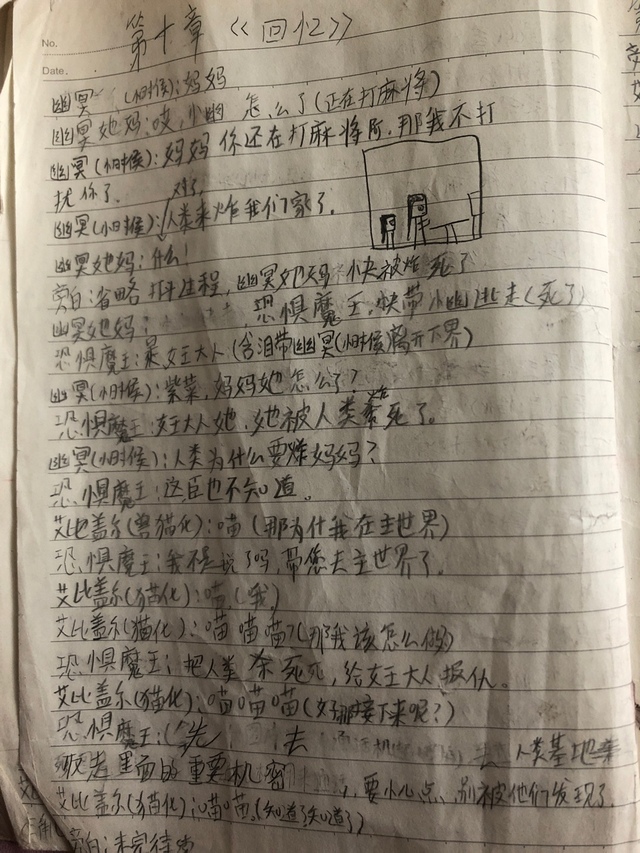 第十章《回忆》
No.
Date.
幽冥(小时候):妈妈
幽冥她妈:哎,小幽 怎么了(正在打麻将)
幽冥(小时候):妈妈 你还在打麻将阿,那我不打
扰你了。
对了,
幽冥(小时候):人类来炸我们家了。
幽冥她妈:什么!
旁白:省略 程,幽冥她妈 快被炸死了
幽冥她妈: 恐惧魔王,快带小幽逃走(死了)
恐惧魔王:是,女王大人(含泪带幽冥(小时候)离开下界)
幽冥(小时候):紫菜,妈妈她怎么了?
恐惧魔王:女王大人她,她被人类杀死了。
幽冥(小时候):人类为什么要炸妈妈?
恐惧魔王:这臣也不知道。
艾比盖尔(兽猫化):喵(那为什我在主世界)
恐惧魔王:我不是说了吗,带您去主世界了。
艾比盖尔(猫化):喵(我)
艾比盖尔(猫化):喵喵喵?(那我该怎么做)
恐惧魔王:把人类杀死死,给女王大人报仇。
艾比盖尔(猫化):喵喵喵(好那接下来呢?)
恐惧魔王:(先 去 人类基地
里面的重要机密 ,要小心点、别被他们发现了
艾比盖尔(猫化):喵喵。(知道了知道了)
旁白:未完待